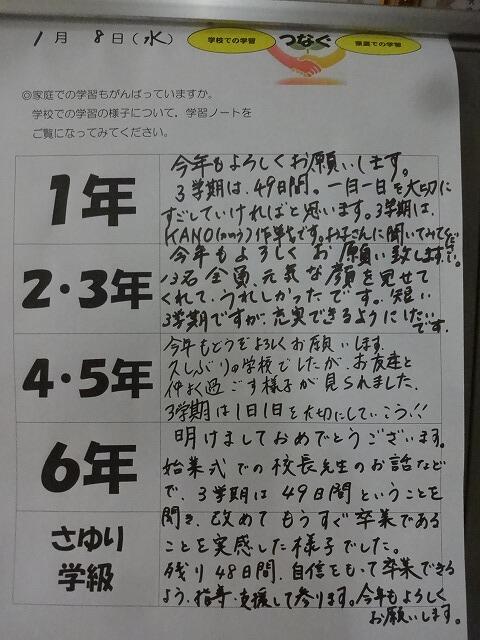 1月 8日(水)
学校での学習 つなぐ 家庭での学習
◎家庭での学習もがんばっていますか。
学校での学習の様子について、学習ノートを
ご覧になってみてください。
1年
今年もよろしくお願いします。
3学期は、49日間。一日一日を大切に
すごしていければと思います。3学期は、
KANO(かのう)作戦です。お子さんに聞いてみてください。
2・3年
今年もよろしくお願い致します。
13名全員、元気な顔を見せて
くれて、うれしかったです。短い
3学期ですが、充実できるようにしたい
です。
4・5年
今年もどうぞよろしくお願いします。
久しぶりの学校でしたが、お友達と
仲よく過ごす様子が見られました。
3学期は1日1日を大切にしていこう!!
6年
明けましておめでとうございます。
始業式での校長先生のお話など
で、3学期は49日間ということを
聞き、改めてもうすぐ卒業である
ことを実感した様子でした。
さゆり
学級
残り48日間、自信をもって卒業できる
よう、指導・支援して参ります。今年もよろしく
お願いします。